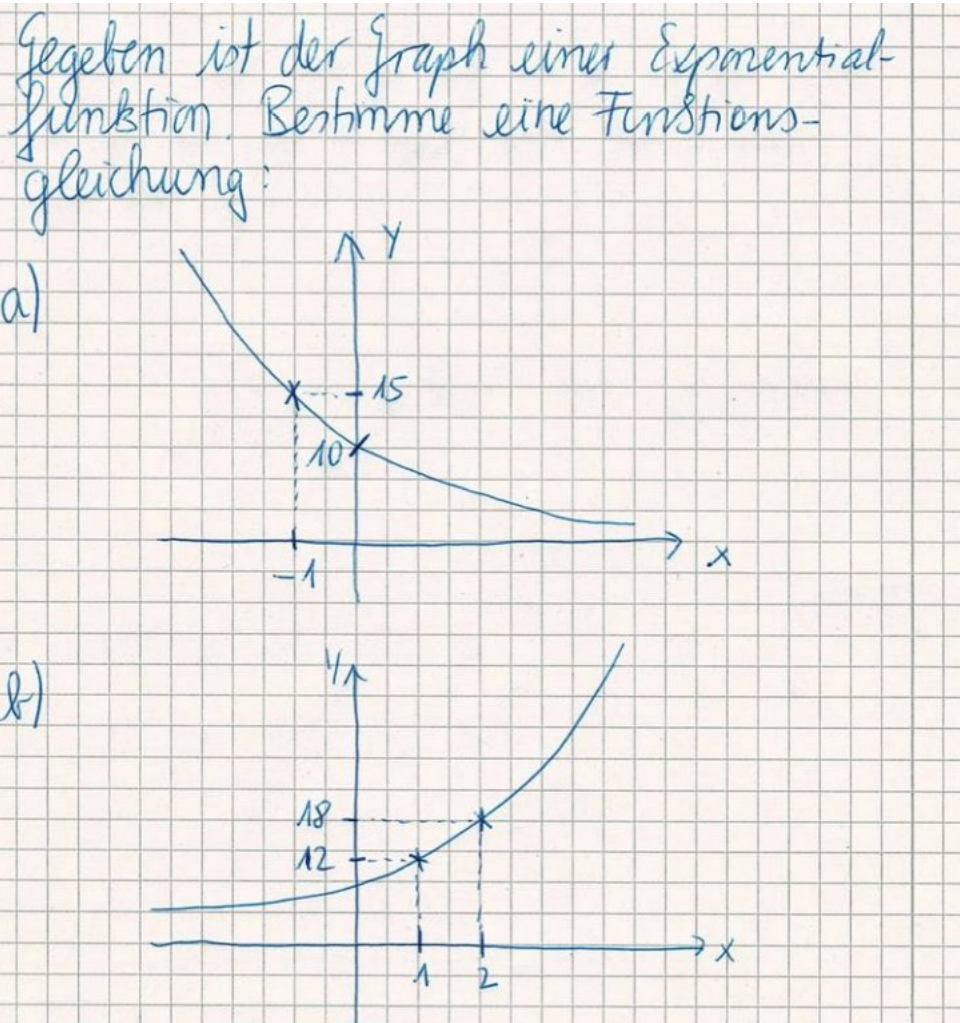 Gegeben ist der Graph einer Exponential-
funktion. Bestimme eine Funktions-
gleichung:
a)
Y
15
10
-1
X
b)
Y
18
12
1 2
X